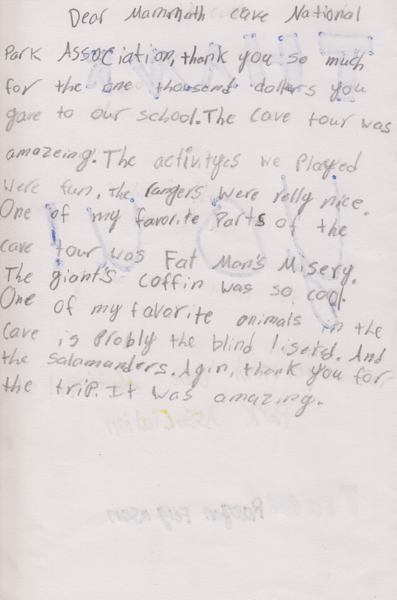 Dear Mammuth cave National
Park Association, thank you so much
for the one thousand dollers you
gave to our school. The cave tour was
amazeing. The activityes we played
were fun, the rangers were relly nice.
One of my favorite parts of the
cave tour was Fat Man's Misery.
The giant's coffin was so cool.
One of my favorite animals in the
cave is probly the blind liserd. And
the salamanders. Agin, thank you for
the trip. It was amazing.